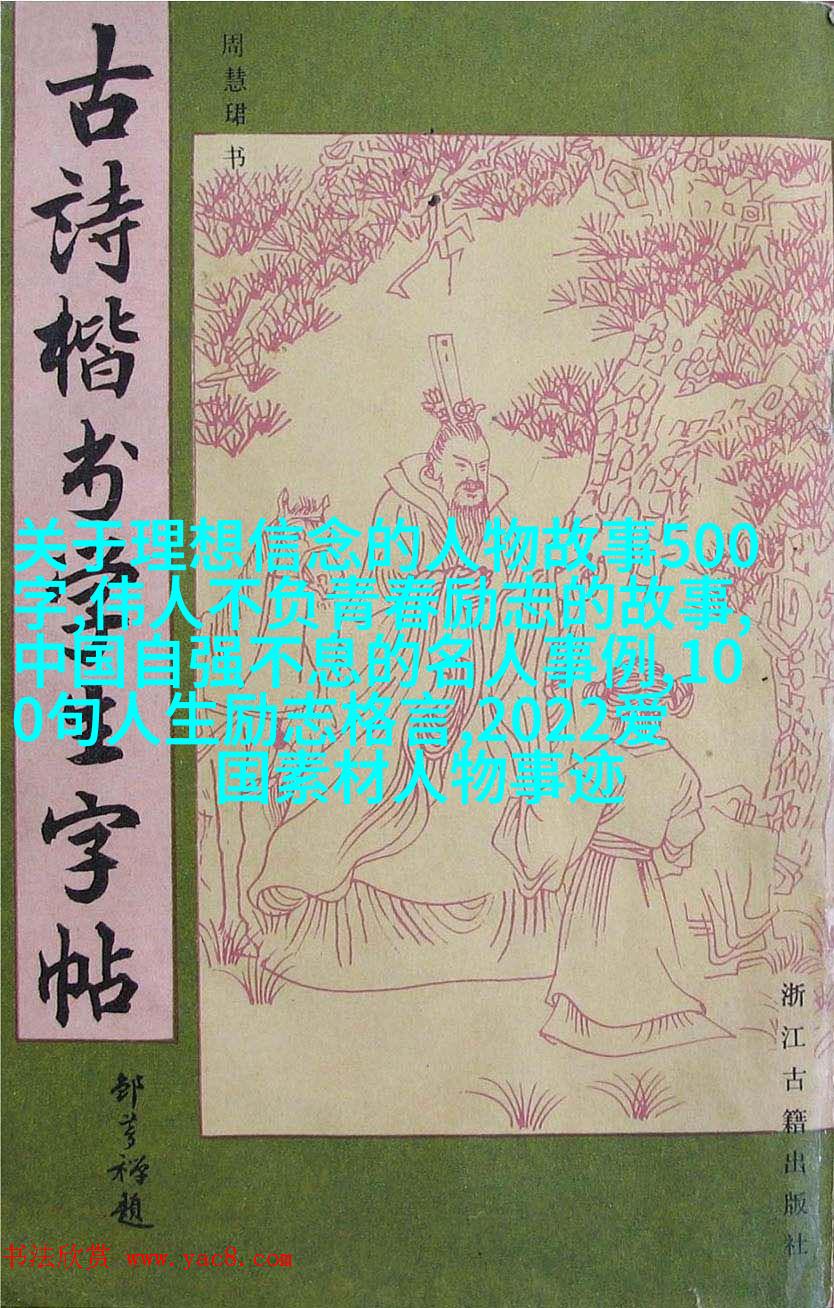 古詩楷书学生字帖
周慧珺书
关于理想信念的人物故事500
字,伟人不负青春励志的故事,
中国自强不息的名人事例,10
0句人生励志格言,2022爱
国素材人物事迹
邹梦禅题
浙江古籍出版社
书法欣赏 www.yac8.com